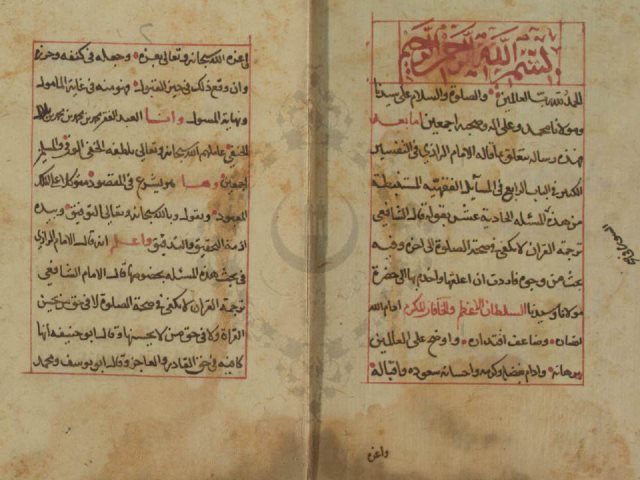 بسم الله الرحمن الرحيم
الحمد لله رب العالمين والصلوة والسلام على سيدنا
ومولانا محمد وعلى اله وصحبه اجمعين اما بعد
فهذه رسالة تتعلق بما قاله الامام الرازي في التفسير
الكبير في الباب الرابع في المسايل الفقهية المستنبطة
من هذه المسئلة الحادية عشر بقوله قال الشافعي
ترجمة القران لا تكفي في صحة الصلوة الى اخره وفيه
بحث من وجوه فاردت ان اعلقها واخدم بها الى حضرة
مولانا وسيدنا السلطان الاعظم والخاقان المكرم ادام الله
وضاعف اقتداره واوضح على العالمين
برهانه وادام بفضله وكرمه واحسانه سعوده واقباله
واعزه
الله سبحانه وتعالى بعزه وجعله في كنفه وحرزه
وان وقع ذلك في حيز القبول فهو منه في غاية المامول
ونهاية المسول وانا العبد الفقير محمد بن محمد بن محمد
الحنفي عاملهم الله سبحانه وتعالى بلطفه الخفي الوفي والمسلمين
اجمعين وها هو يشرع في المقصود متوكلا على الملك
المعبود ويقول وبالله سبحانه وتعالى التوفيق وبيده
ازمة التحقيق والتدقيق واعلم انه قال الامام الرازي
في بحث هذه المسئلة بخصوصها قال الامام الشافعي
ترجمة القران لا تكفي في صحة الصلوة لا في حق من يحسن
القراة ولا في حق من لا يحسنها وقال ابو حنيفة انها
كافية في حق القادر والعاجز وقال ابو يوسف ومحمد